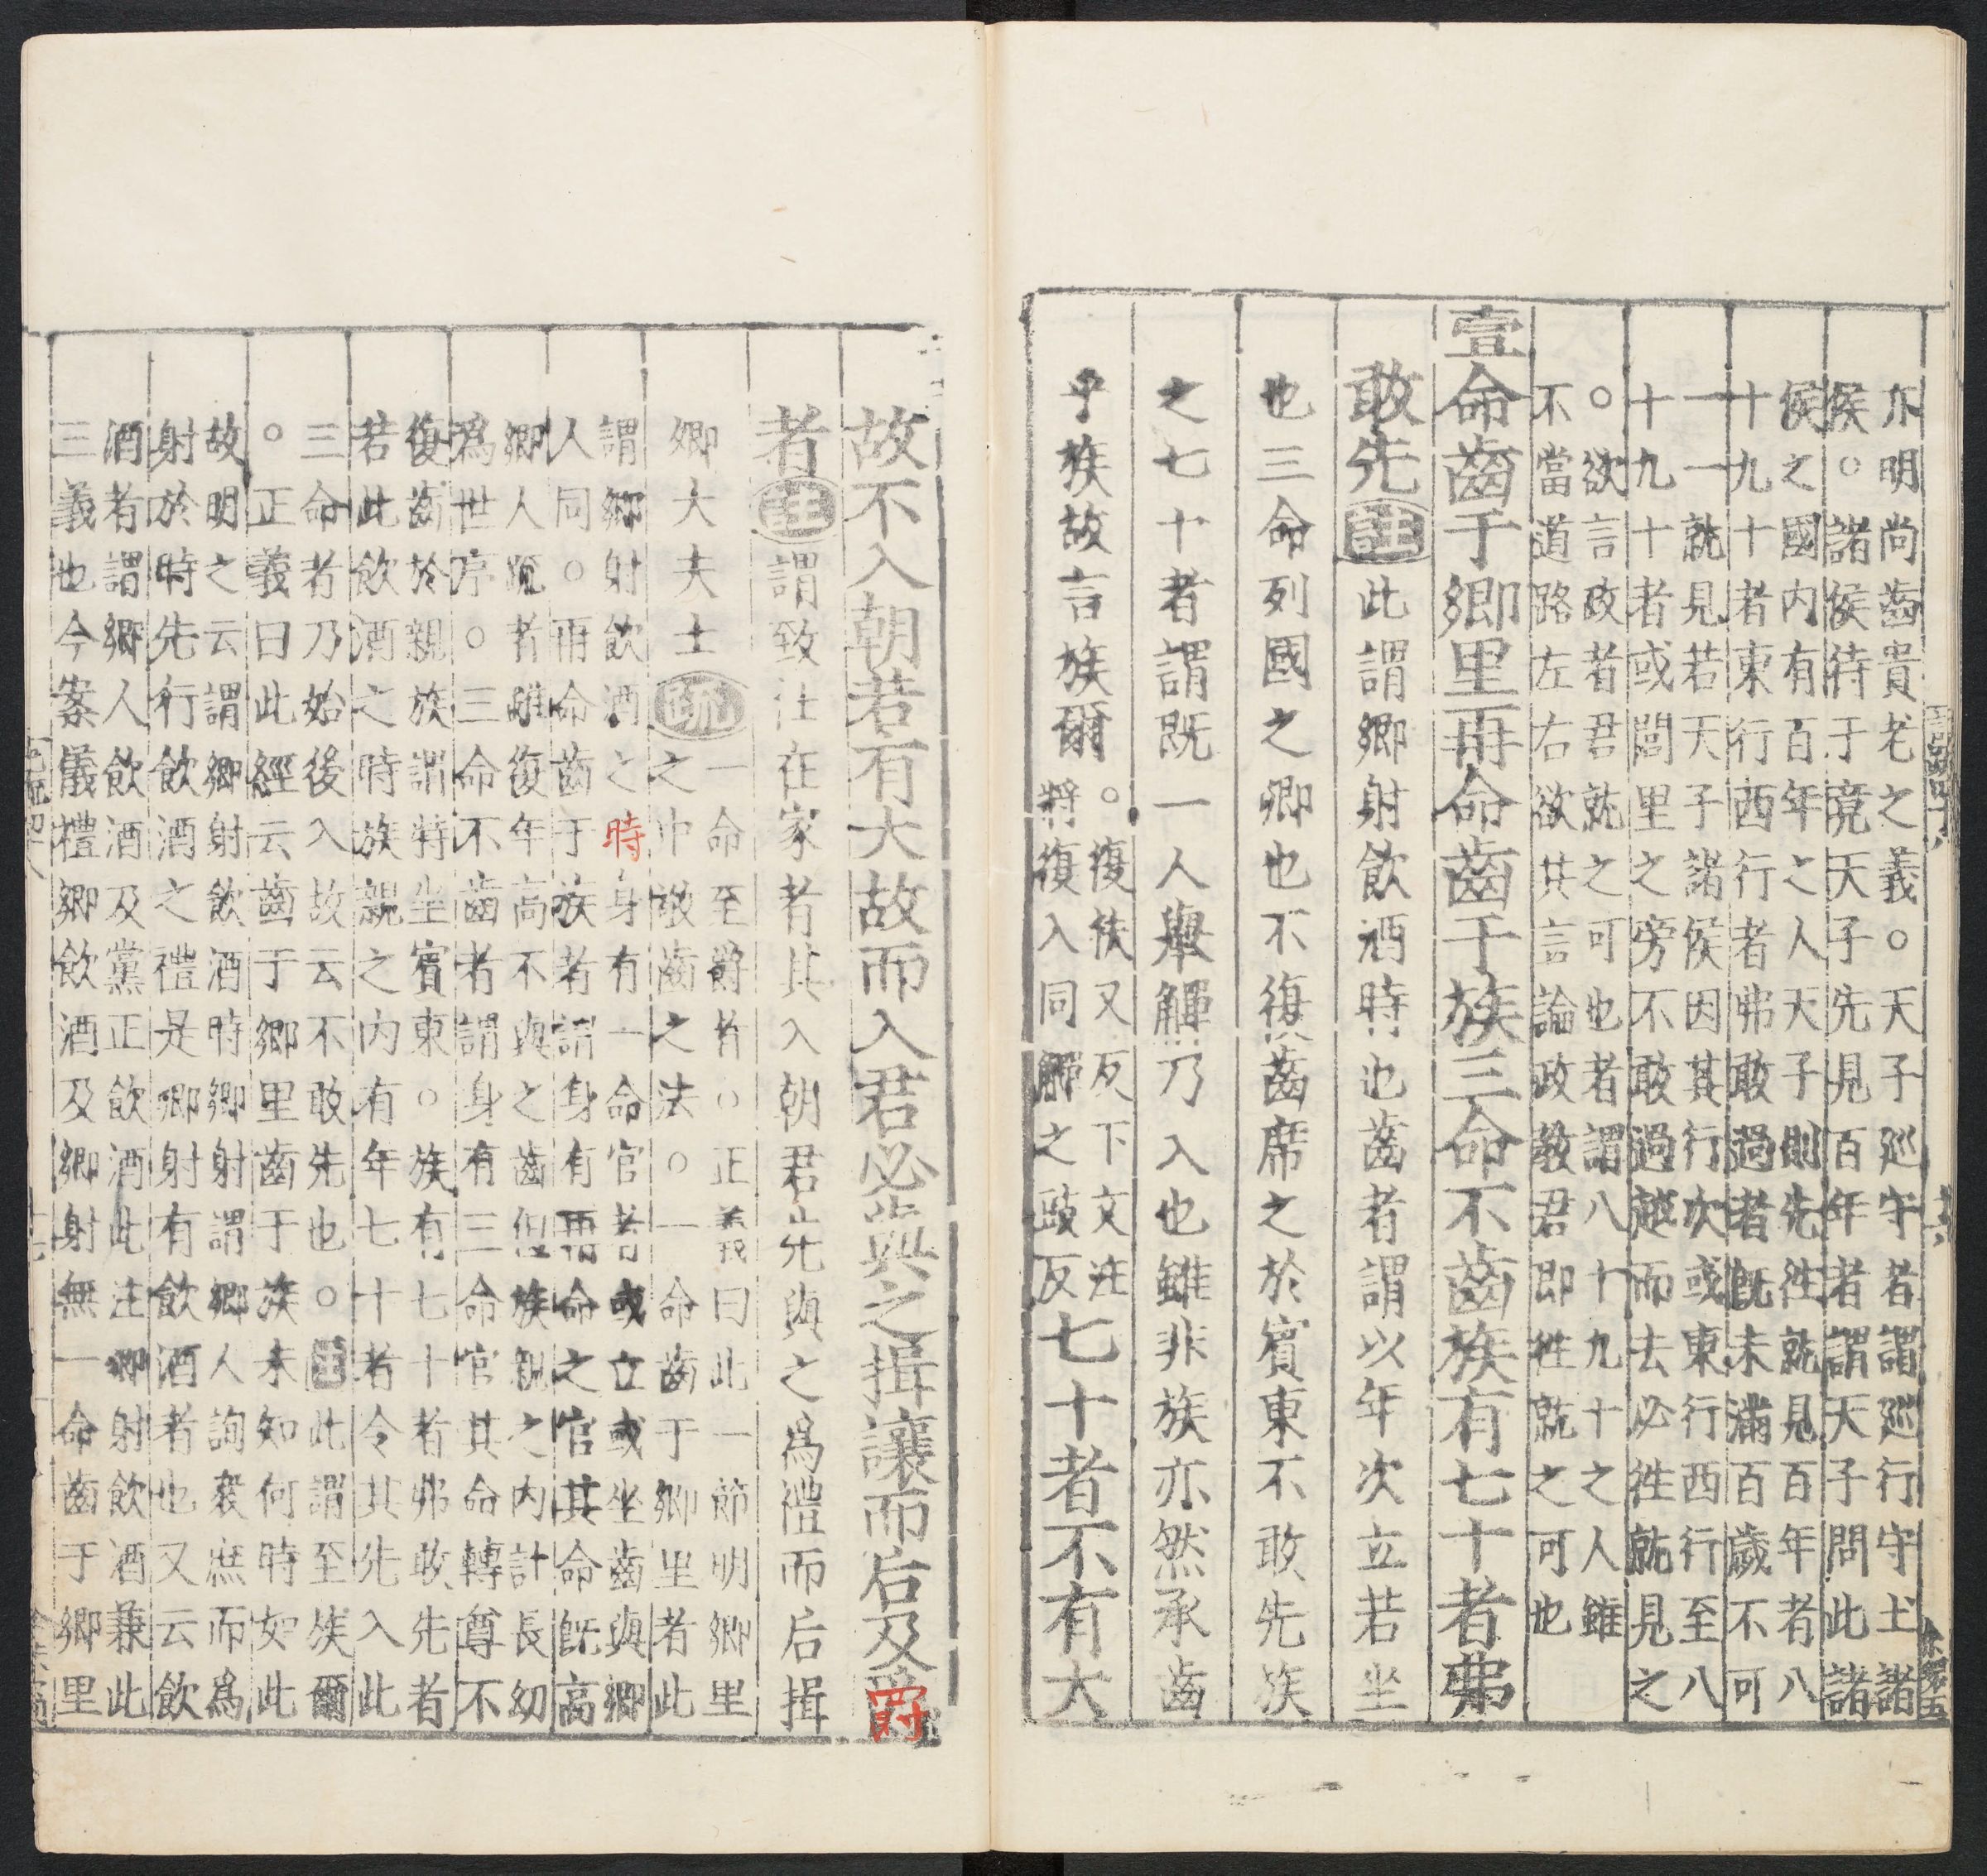 亦明尚齒貴老之義○天子廵守者謂廵行守土諸
侯○諸侯待于竟天子先見百年者謂天子問此諸
侯之國内有百年之人天子則先徃就見百年者八
十九十者東行西行者弗敢過者既未滿百歲不可
一一就見若天子諸侯因其行次或東行西行至八
十九十者或閭里之旁不敢過越而去必徃就見之
○欲言政者君就之可也者謂八十九十之人雖
不當道路左右欲其言論政教君即徃就之可也
壹命齒于鄉里再命齒于族三命不齒族有七十者弗
敢先註此謂鄉射飲酒時也齒者謂以年次立若坐
也三命列國之卿也不復齒席之於賓東不敢先族
之七十者謂既一人舉觶乃入也雖非族亦然承齒
乎族故言族爾
○復扶又反下文注
將復入同觶之豉反
七十者不有大
故不入朝若有大故而入君必與之揖讓而后及爵
者註謂致仕在家者其入朝君先與之為禮而后揖
卿大夫士疏
一命至爵者○正義曰此一節明鄉里
之中敬齒之法○一命齒于鄉里者此
謂鄉射飲酒之時身有一命官者或立或坐齒與鄉
人同○再命齒于族者謂身有再命之官其命既高
鄉人䟽者雖復年高不與之齒但族親之内計長幼
爲世序○三命不齒者謂身有三命官其命轉尊不
復齒於親族謂特坐賓東○族有七十者弗敢先者
若此飲酒之時族親之内有年七十者令其先入此
三命者乃始後入故云不敢先也○註此謂至族爾
○正義曰此經云齒于鄉里齒于族未知何時如此
故明之云謂鄉射飲酒時鄉射謂鄉人詢衆庶而爲
射於時先行飲酒之禮是鄉射有飲酒者也又云飲
酒者謂鄉人飲酒及黨正飲酒此注鄉射飲酒兼此
三義也今案儀禮鄉飲酒及鄉射無一命齒于鄉里